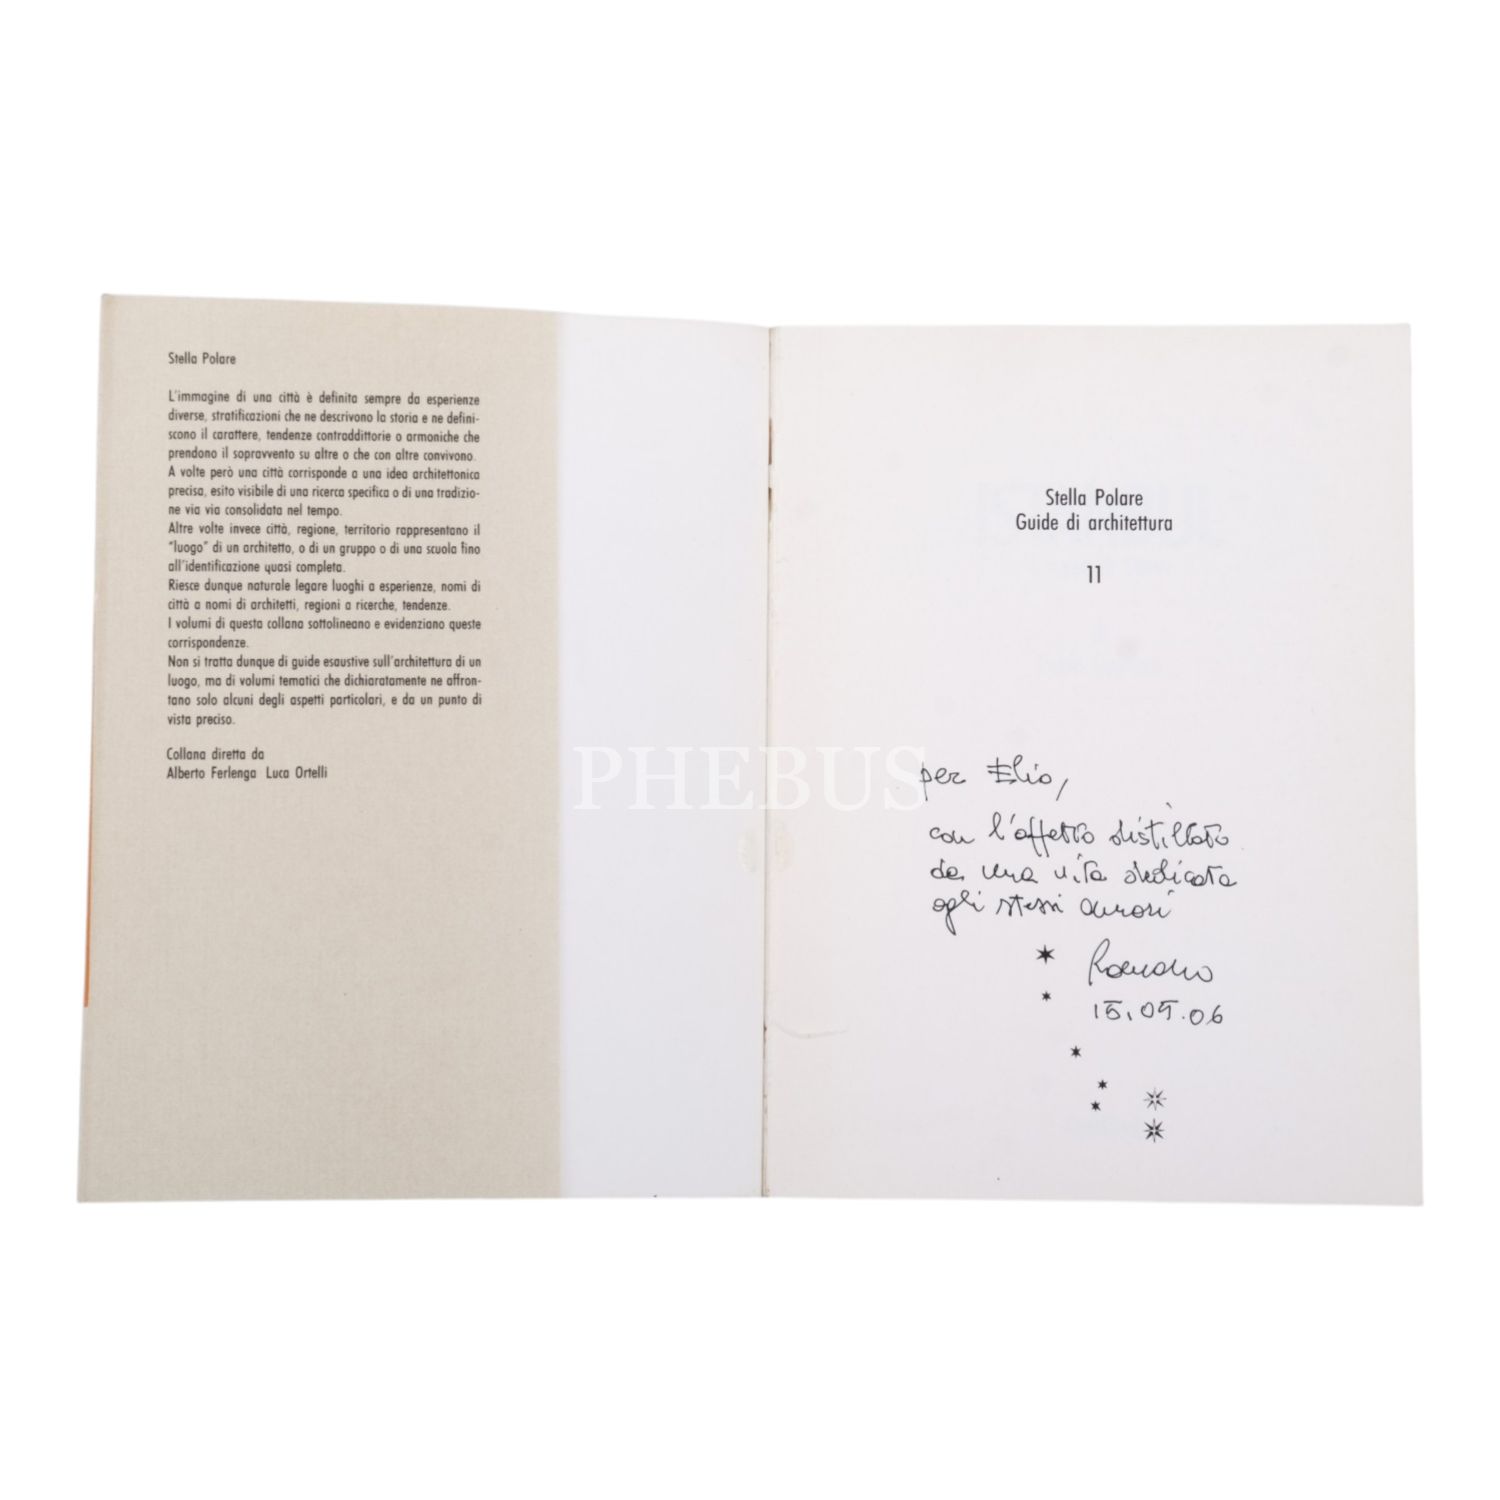 Stella Polare
L'immagine di una città è definita sempre da esperienze
diverse, stratificazioni che ne descrivono la storia e ne defini-
scono il carattere, tendenze contraddittorie o armoniche che
prendono il sopravvento su altre o che con altre convivono.
A volte però una città corrisponde a una idea architettonica
precisa, esito visibile di una ricerca specifica o di una tradizio-
ne via via consolidata nel tempo.
Altre volte invece città, regione, territorio rappresentano il
"luogo" di un architetto, o di un gruppo o di una scuola fino
all'identificazione quasi completa.
Riesce dunque naturale legare luoghi a esperienze, nomi di
città a nomi di architetti, regioni a ricerche, tendenze.
I volumi di questa collana sottolineano e evidenziano queste
corrispondenze.
Non si tratta dunque di guide esaustive sull'architettura di un
luogo, ma di volumi tematici che dichiaratamente ne affron-
tano solo alcuni degli aspetti particolari, e da un punto di
vista preciso.
Collana diretta da
Alberto Ferlenga Luca Ortelli
PHEBUS
Stella Polare
Guide di architettura
11
per Elio,
con l'affetto distillato
da una vita dedicata
agli stessi amori
15.09.06